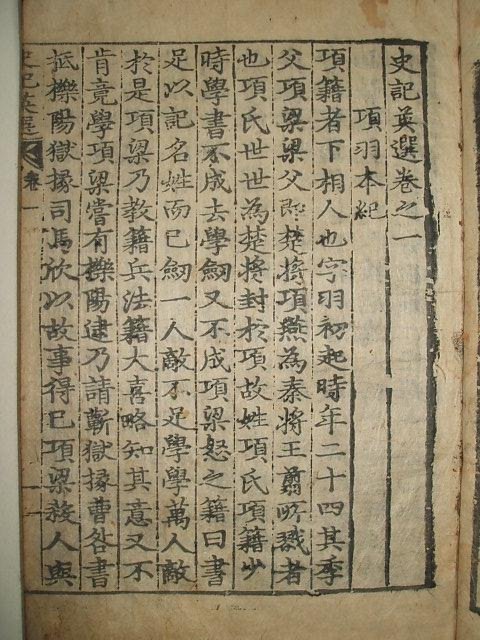 史記英選卷之一
項羽本紀
項籍者下相人也字羽初起時年二十四其季
父項梁梁父即楚將項燕為秦將王翦所戮者
也項氏世世為楚將封於項故姓項氏項籍少
時學書不成去學劒又不成項梁怒之籍曰書
足以記名姓而已劒一人敵不足學學萬人敵
於是項梁乃教籍兵法籍大喜略知其意又不
肯竟學項梁嘗有櫟陽逮乃請蘄獄掾曹咎書
抵櫟陽獄掾司馬欣以故事得已項梁殺人與
史記英選 卷一